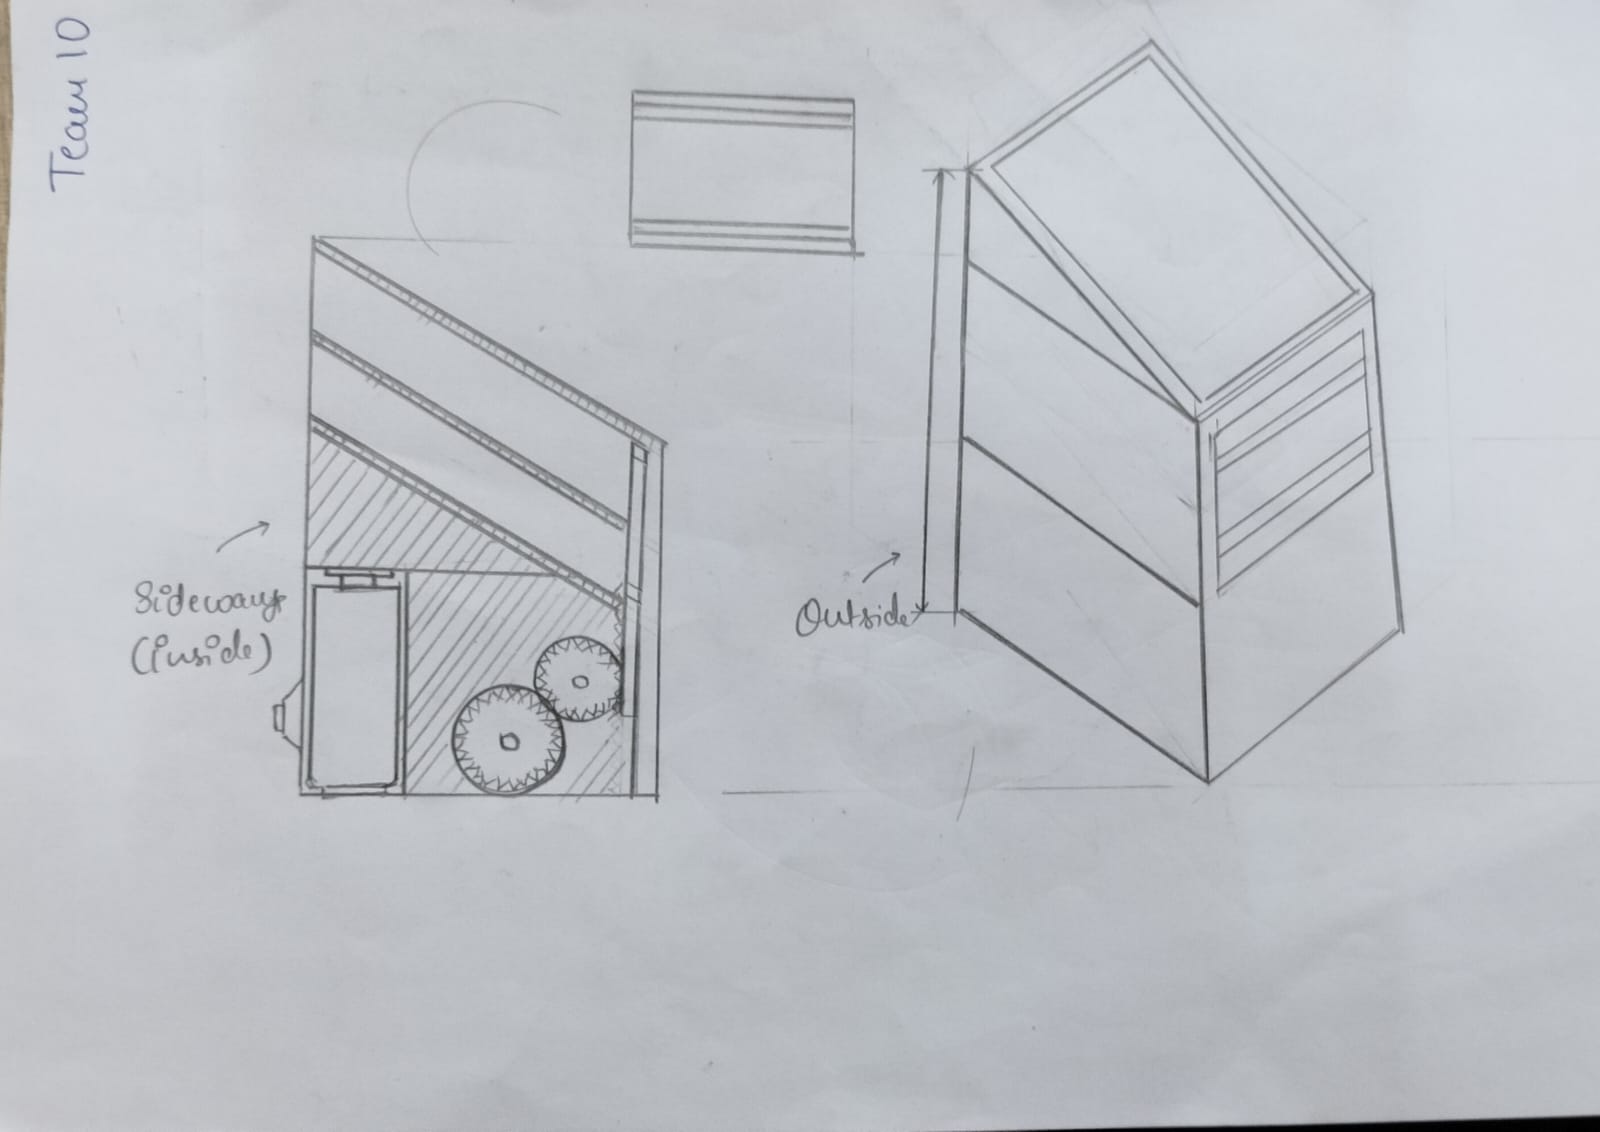 Team 10
Sideways
(inside)
Outside